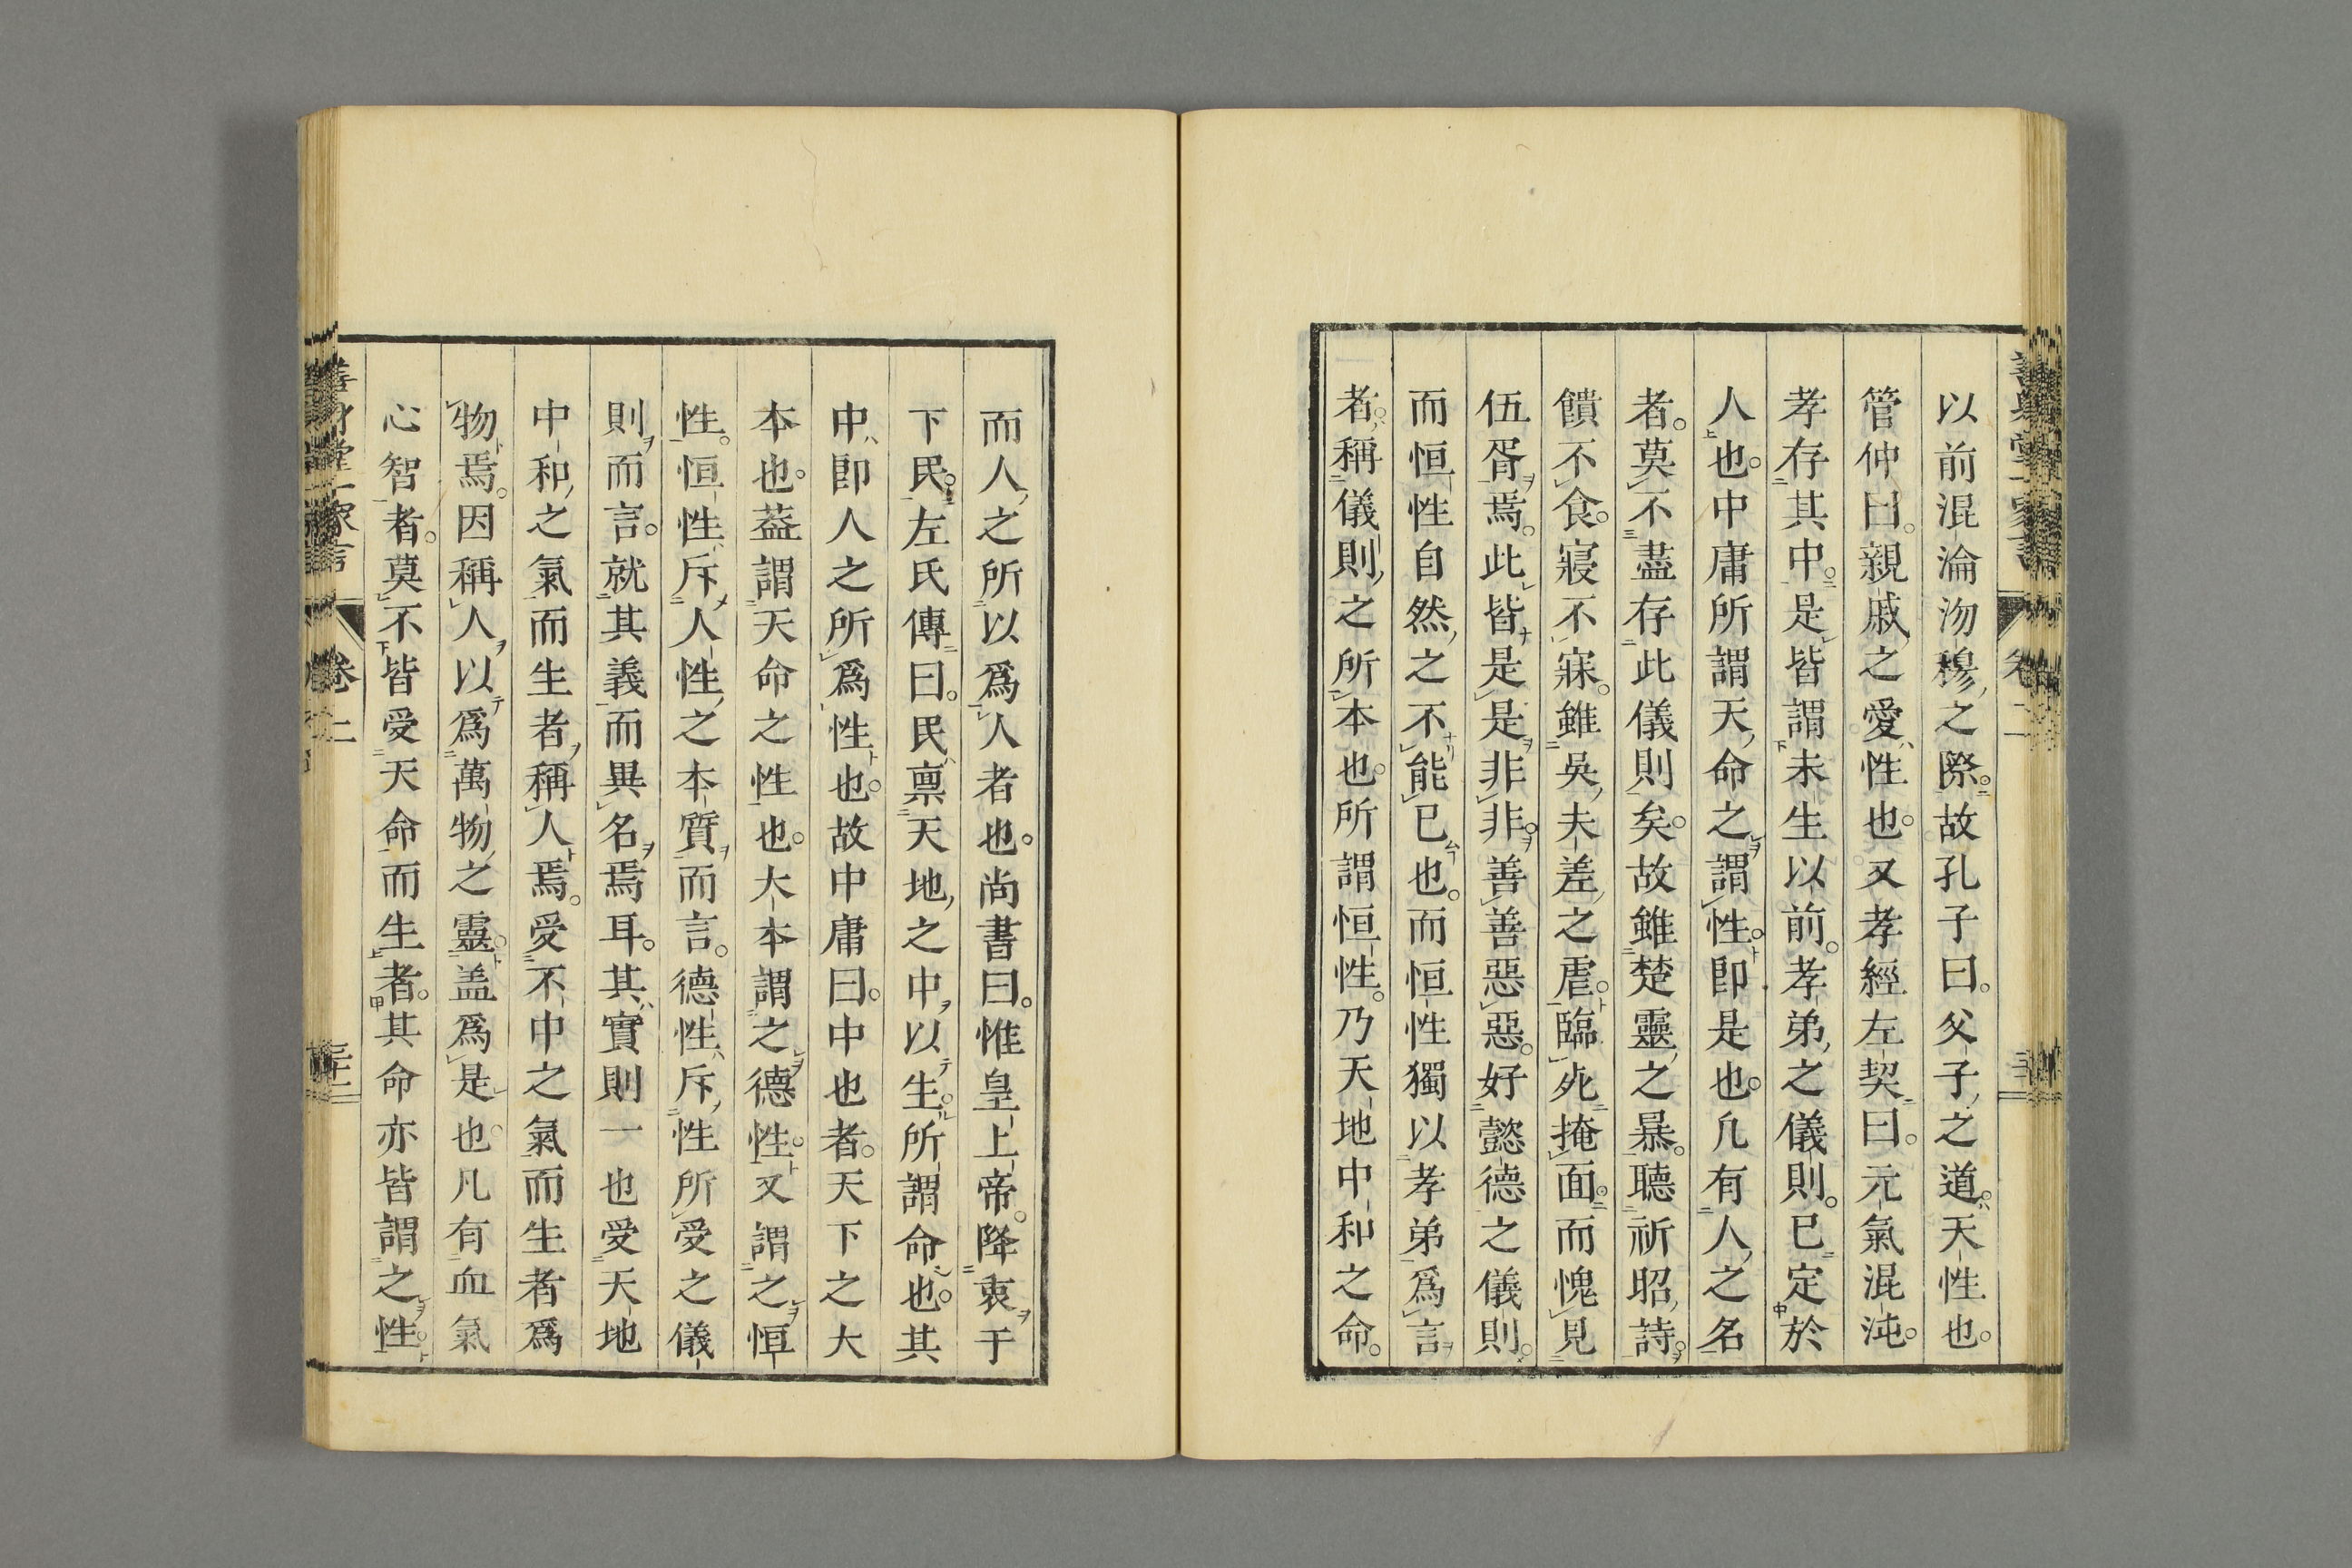 以前混淪沕穆之際。故孔子曰。父子之道。天性也。
管仲曰。親戚之愛性也。又孝經左契曰。元氣混沌。
孝存其中。是皆謂未生以前。孝弟之儀則。已定於
人也。中庸所謂天命之謂性。即是也。凡有人之名
者。莫不盡存此儀則矣。故雖楚靈之暴。聽祈昭詩。
饋不食。寢不寐。雖吳夫差之虐。臨死掩面。而愧見
伍胥焉。此皆是是非非。善善惡惡。好懿德之儀則。
而恒性自然之不能已也。而恒性獨以孝弟為言
者。稱儀則之所本也。所謂恒性。乃天地中和之命。
而人之所以爲人者也。尚書曰。惟皇上帝。降衷于
下民。左氏傳曰。民禀天地之中以生。所謂命也。其
中即人之所爲性也。故中庸曰。中也者。天下之大
本也。葢謂天命之性也。大本謂之德性。又謂之恒
性。恒性斥人性之本質而言。德性斥性所受之儀
則而言。就其義而異名焉耳。其實則一也受天地
中和之氣而生者稱人焉。受不中之氣而生者爲
物焉。因稱人以爲萬物之靈。盖爲是也。凡有血氣
心智者。莫不皆受天命而生者。其命亦皆謂之性。
卷二